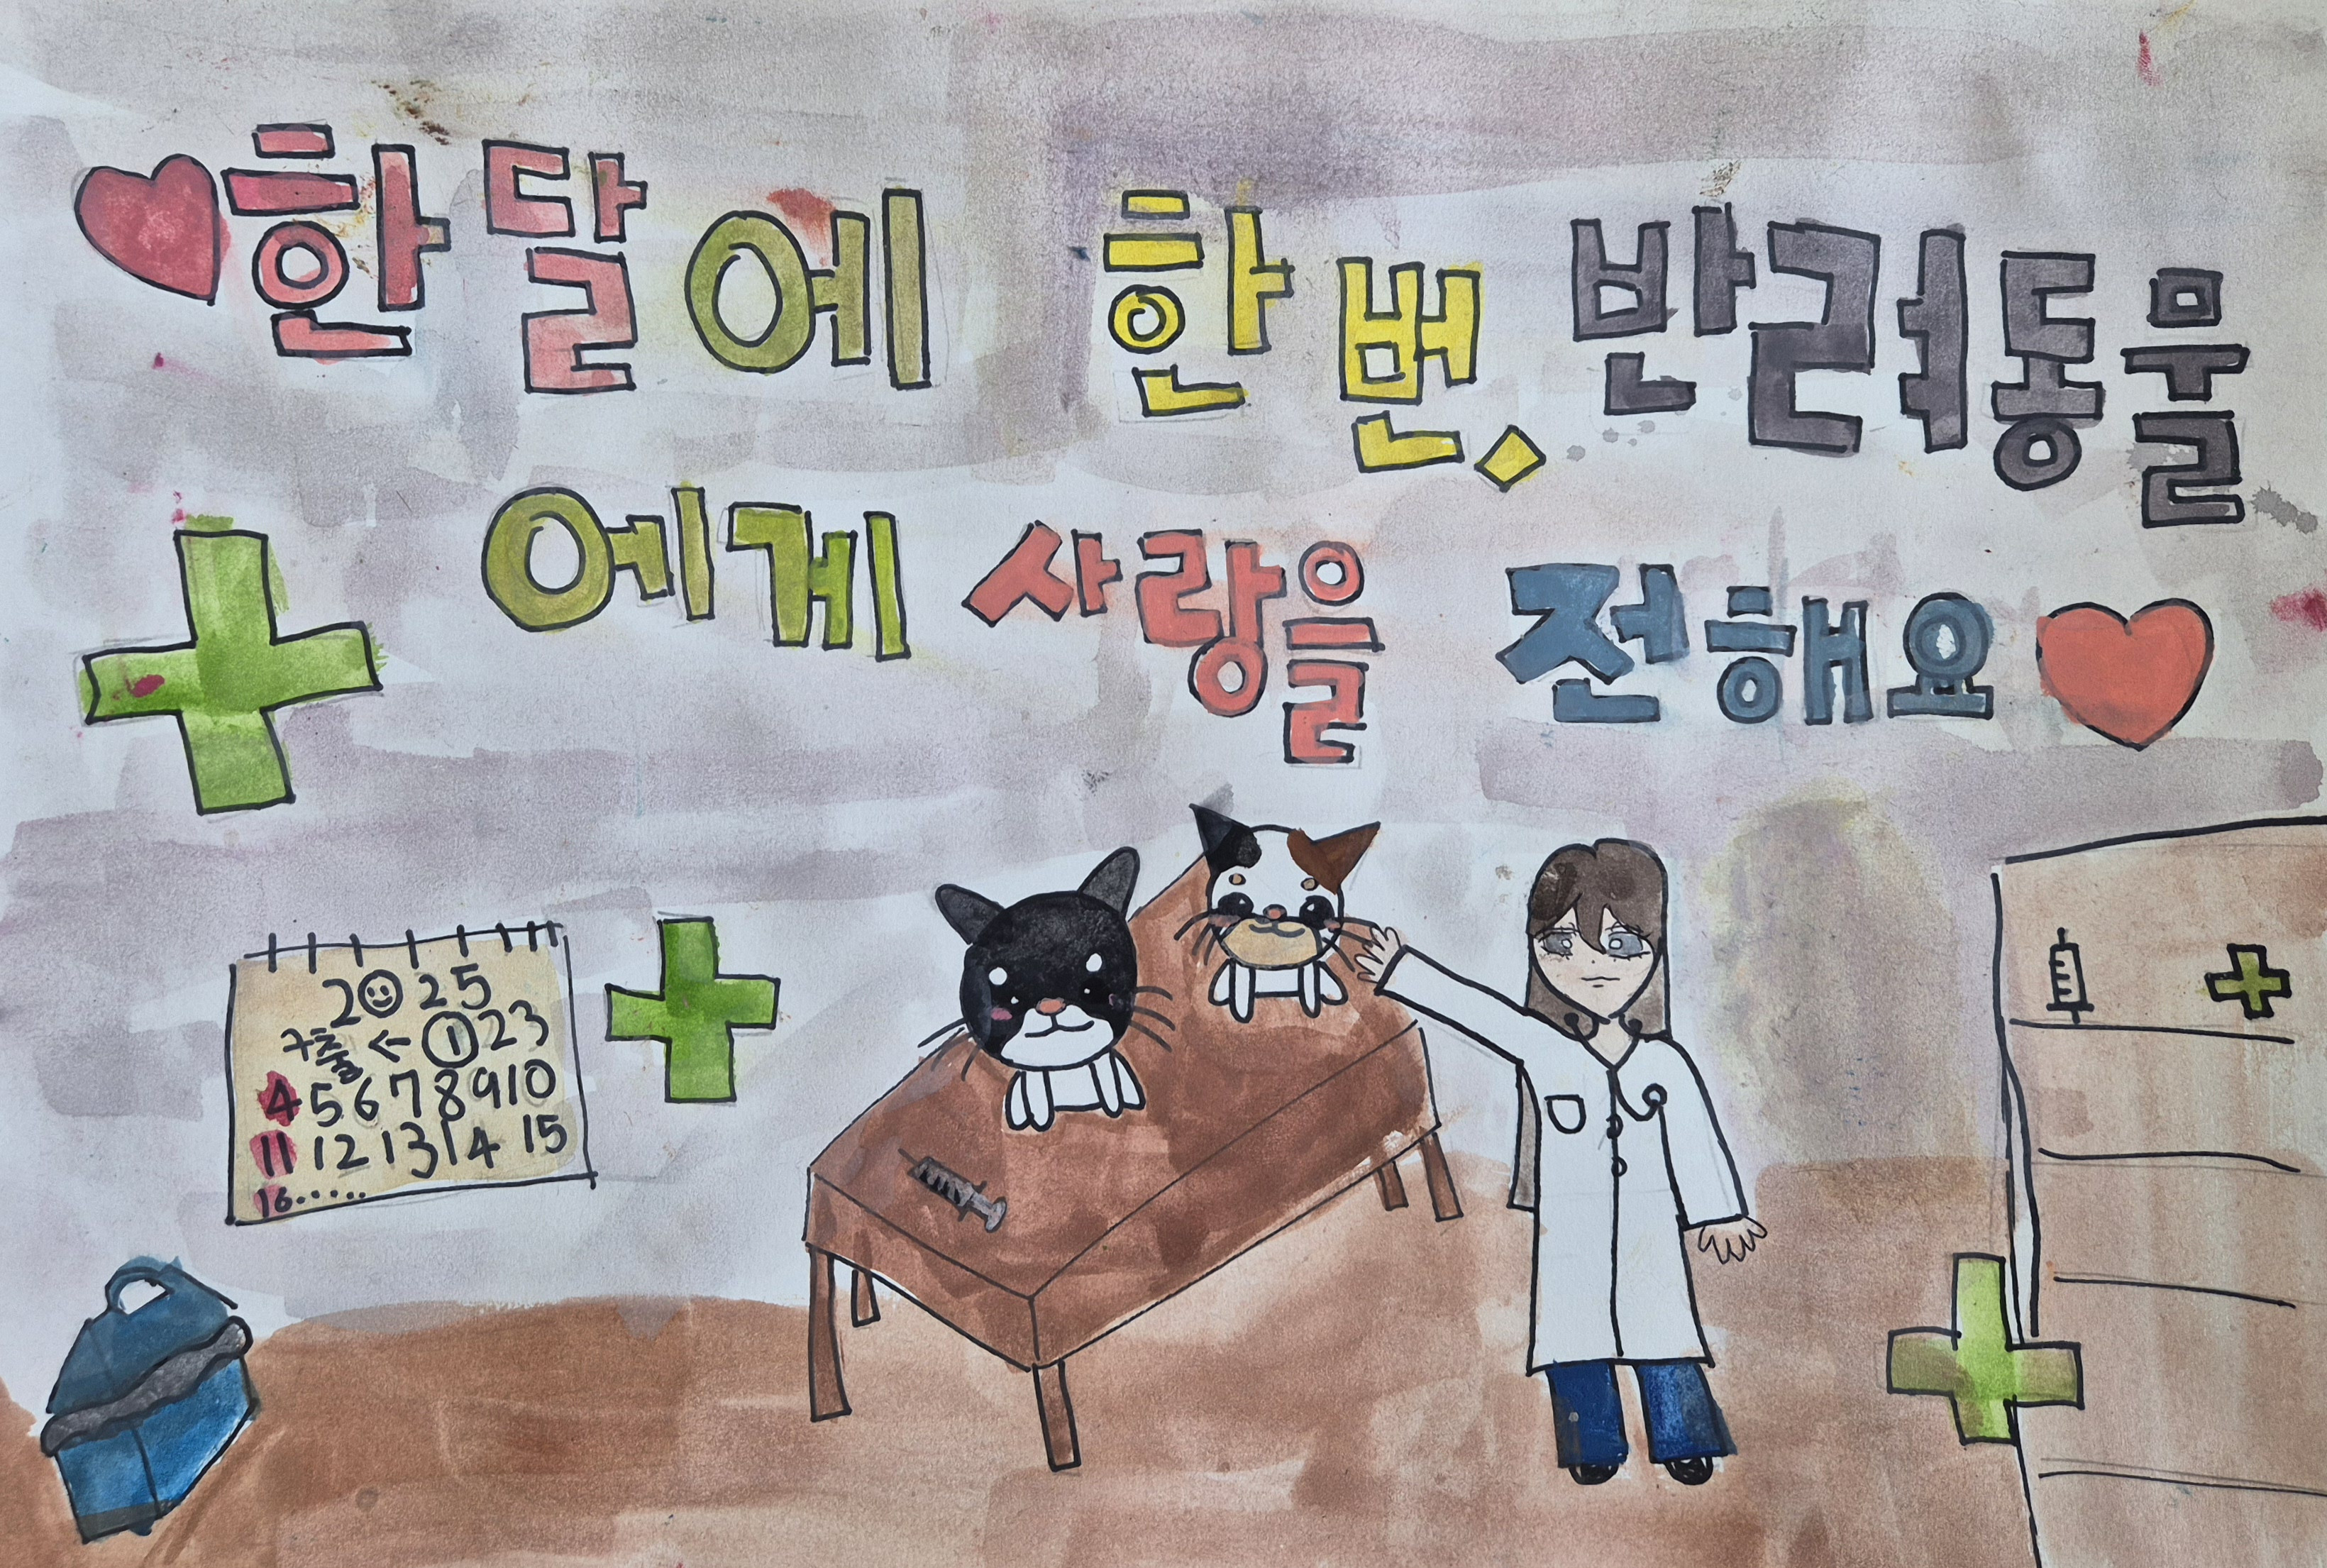 한 달에 한 번, 반려동물
에게 사랑을 전해요
2025
구충 ← ① 2 3
4 5 6 7 8 9 10
11 12 13 14 15
16......